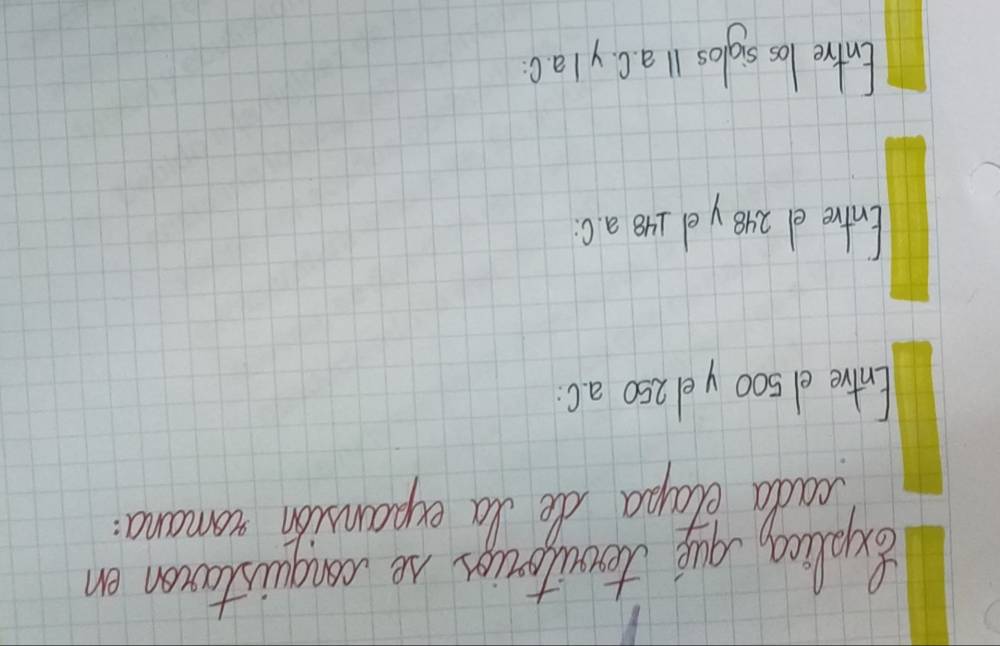 Explica qué territorios se conquistaron en
cada etapa de la expansión romana:
Entre el 500 y el 250 a.C:
Entre el 248 y el 148 a.C:
Entre los siglos II a.C. y I a.C: